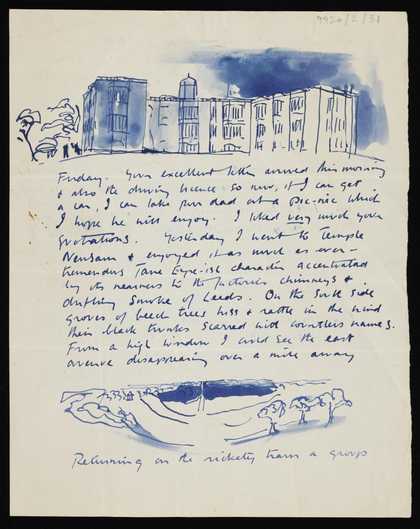 9920/2/31
Friday. Your excellent letter arrived this morning
& also the driving licence. So now, if I can get
a car, I can take your dad out a pic-nic which
I hope he will enjoy. I liked very much your
quotations. Yesterday I went to Temple
Newsam & enjoyed it as much as ever -
tremendous Jane Eyre-ish character accentuated
by its nearness to the factories chimneys &
drifting smoke of Leeds. On the South side
groves of beech trees hiss & rattle in the wind
their black trunks scarred with countless names.
From a high window I could see the east
avenue disappearing over a mile away
Returning on the rickety tram a group